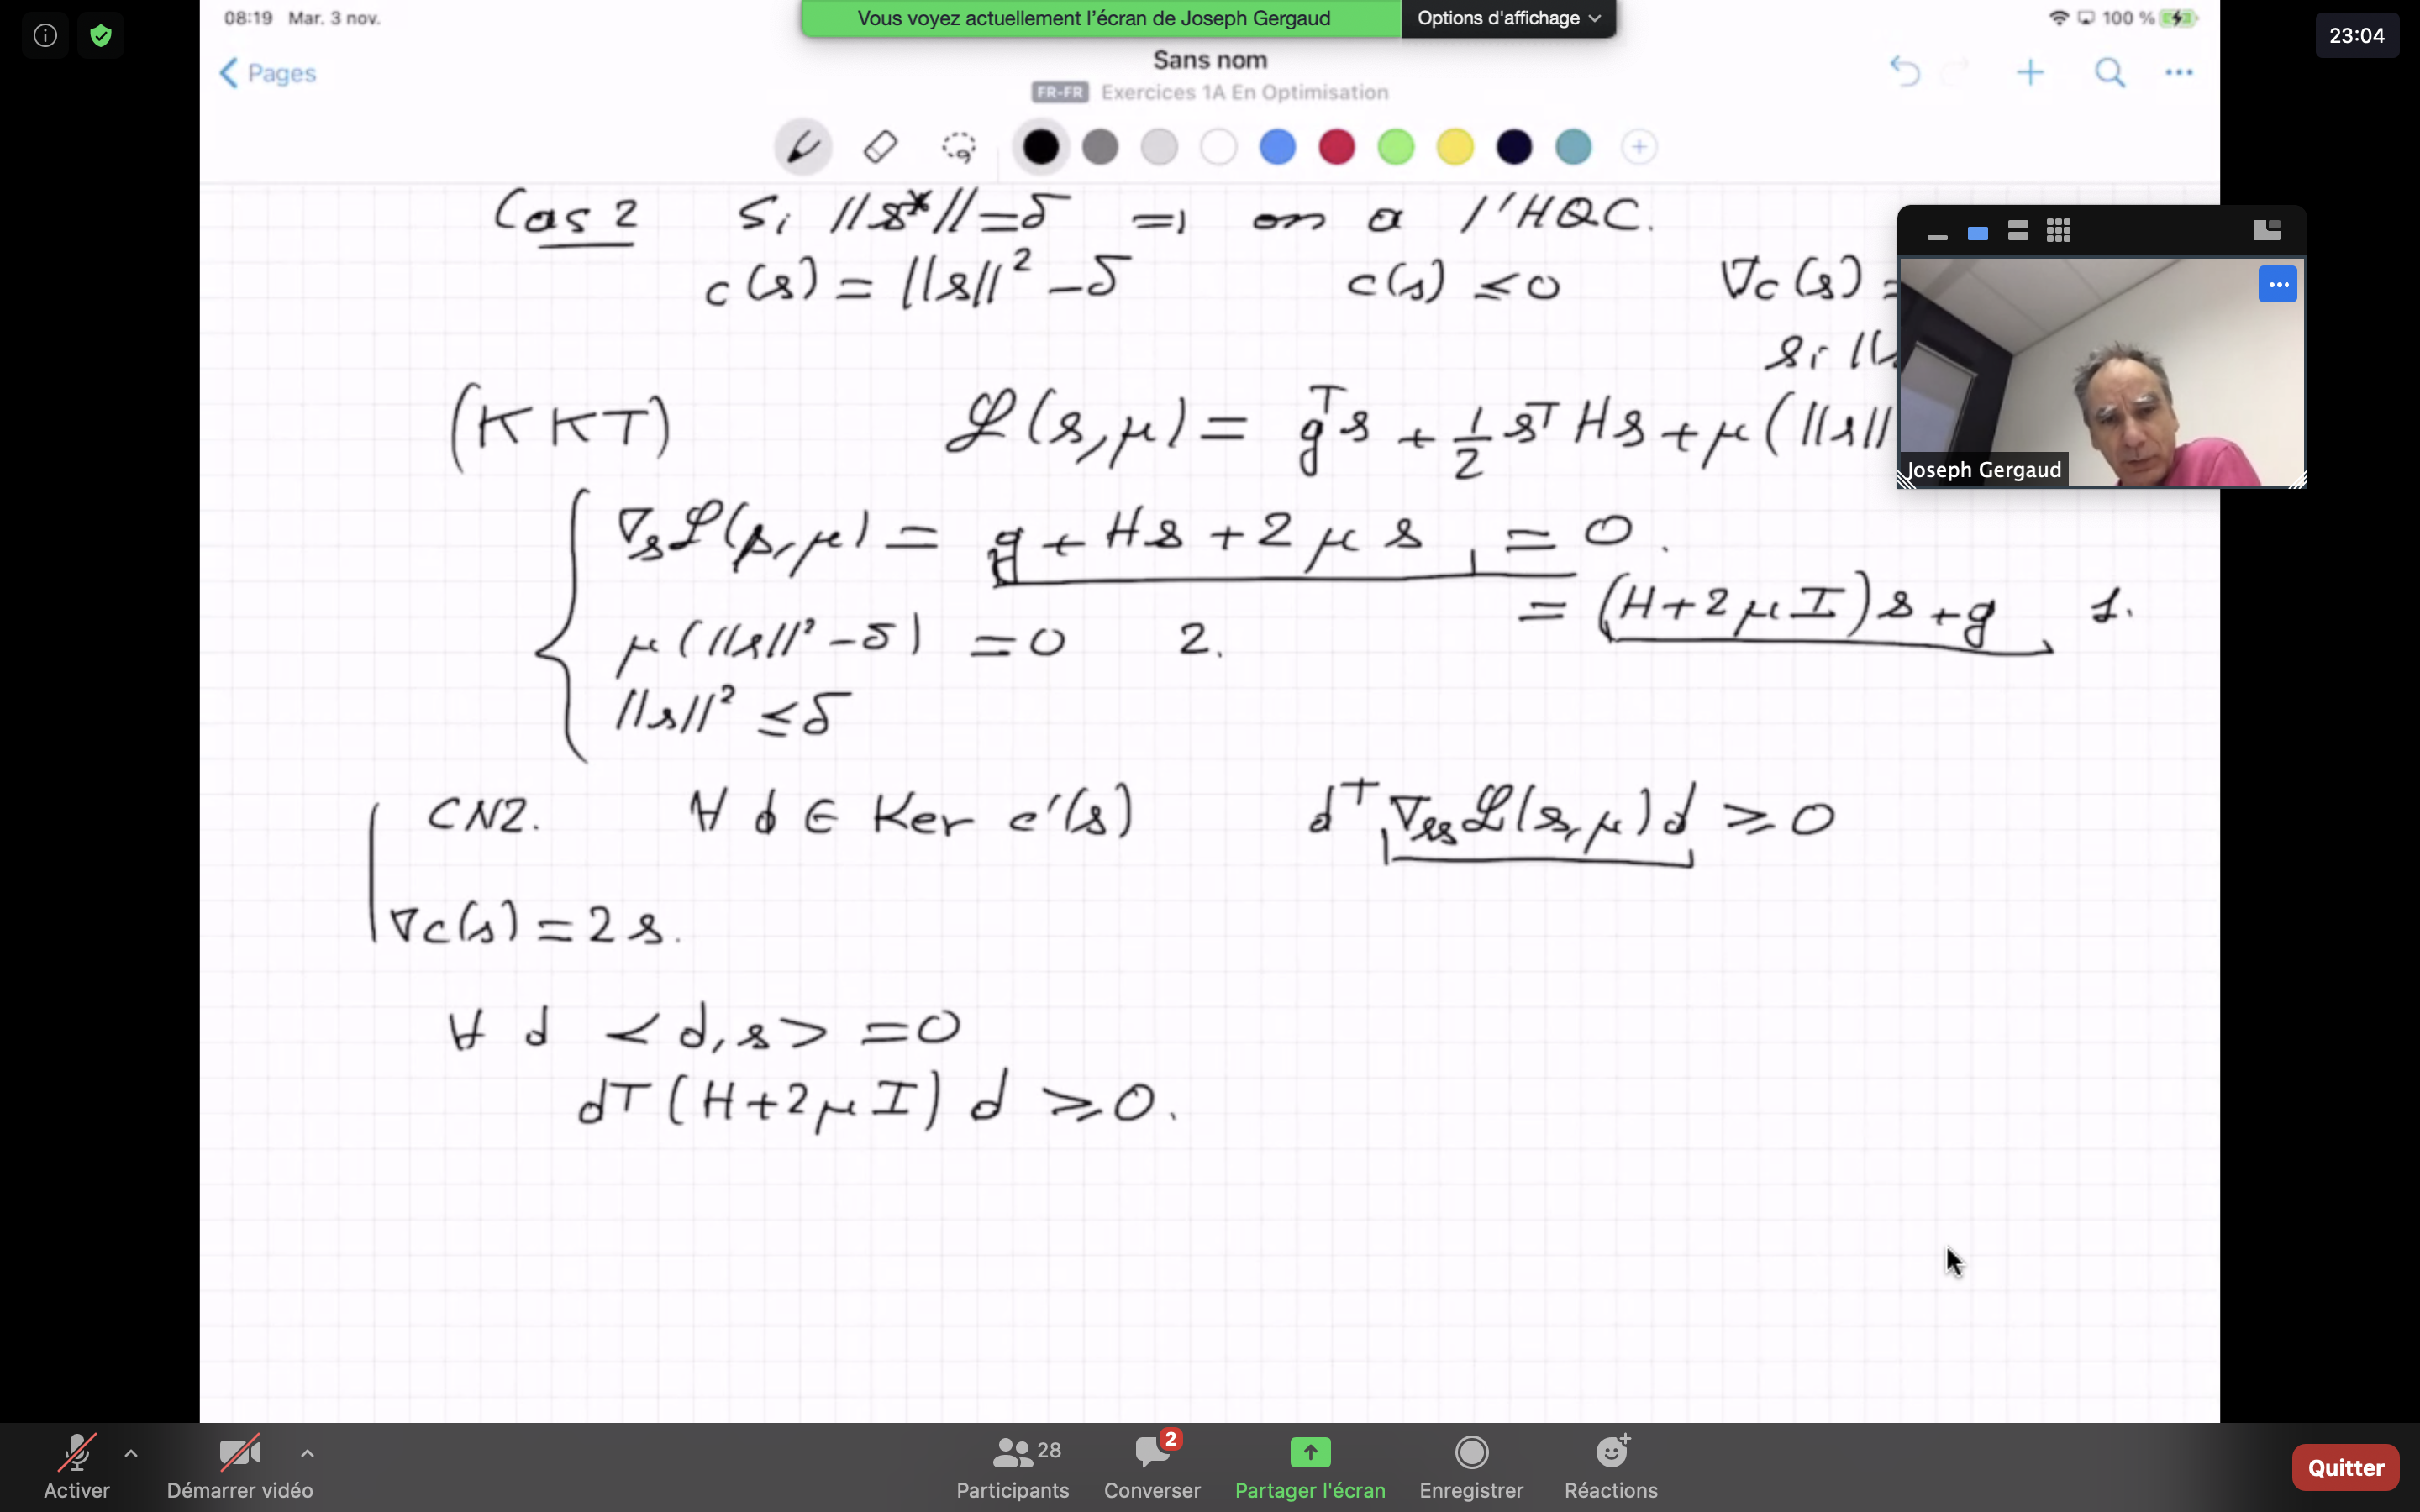 08:19 Mar. 3 nov.
Vous voyez actuellement l'écran de Joseph Gergaud
Options d'affichage
100 %
23:04
Pages
Sans nom
FR-FR Exercices 1A En Optimisation
Cas 2 Si ||s*|| = δ => on a l'HQC.
c(s) = ||s||² - δ c(s) ≤ 0 ∇c(s) =
si ||
(KKT) ℒ(s,μ) = gᵀs + 1/2 sᵀHs + μ(||s||
∇ₛℒ(s,μ) = g + Hs + 2μs = 0.
= (H+2μI)s + g 1.
μ(||s||² - δ) = 0 2.
||s||² ≤ δ
CN2. ∀ d ∈ Ker c'(s) dᵀ∇ₛₛℒ(s,μ)d ≥ 0
∇c(s) = 2s.
∀ d <d,s> = 0
dᵀ(H+2μI)d ≥ 0.
Joseph Gergaud
Activer
Démarrer vidéo
28
Participants
2
Converser
Partager l'écran
Enregistrer
Réactions
Quitter